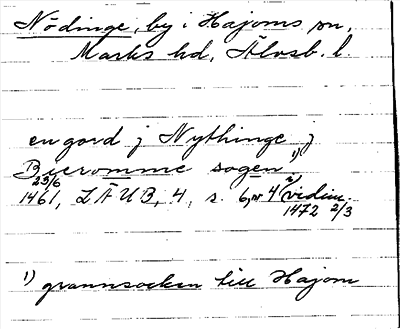 Nödinge, by i Hajoms sn,
Marks hd, Älvsb. l.
en gard j Nythinge j
Bieromme sogen 1)
23/6
1461, LÄUB, 4, s. 6, nr 4 (vidim.
1472 2/3
1) grannsocken till Hajom